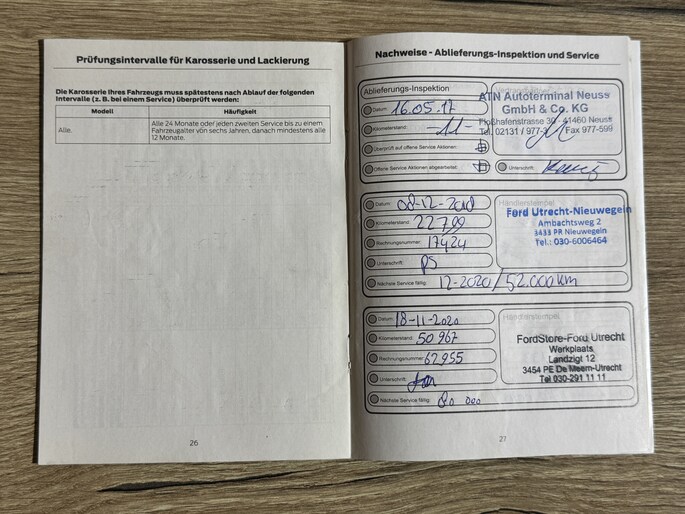 Prüfungsintervalle für Karosserie und Lackierung
Die Karosserie Ihres Fahrzeugs muss spätestens nach Ablauf der folgenden
Intervalle (z. B. bei einem Service) überprüft werden:
Modell Häufigkeit
Alle.
Alle 24 Monate oder jeden zweiten Service bis zu einem
Fahrzeugalter von sechs Jahren, danach mindestens alle
12 Monate.
26
Nachweise - Ablieferungs-Inspektion und Service
Ablieferungs-Inspektion
Datum: 16.05.17
Kilometerstand: -11-
Überprüft auf offene Service Aktionen:
Offene Service Aktionen abgearbeitet:
ATN Autoterminal Neuss
GmbH & Co. KG
Floßhafenstrasse 30 41460 Neuss
Tel. 02131 / 977- Fax 977-599
Unterschrift:
Datum: 08-12-2018
Kilometerstand: 22799
Rechnungsnummer: 17424
Unterschrift: PS
Nächste Service fällig: 12-2020/52.000km
Händlerstempel
Ford Utrecht-Nieuwegein
Ambachtsweg 2
3433 PR Nieuwegein
Tel.: 030-6006464
Datum: 18-11-2020
Kilometerstand: 50967
Rechnungsnummer: 62955
Unterschrift:
Nächste Service fällig: 80 000
Händlerstempel
FordStore-Ford Utrecht
Werkplaats
Landzigt 12
3454 PE De Meern-Utrecht
Tel 030-291 11 11
27